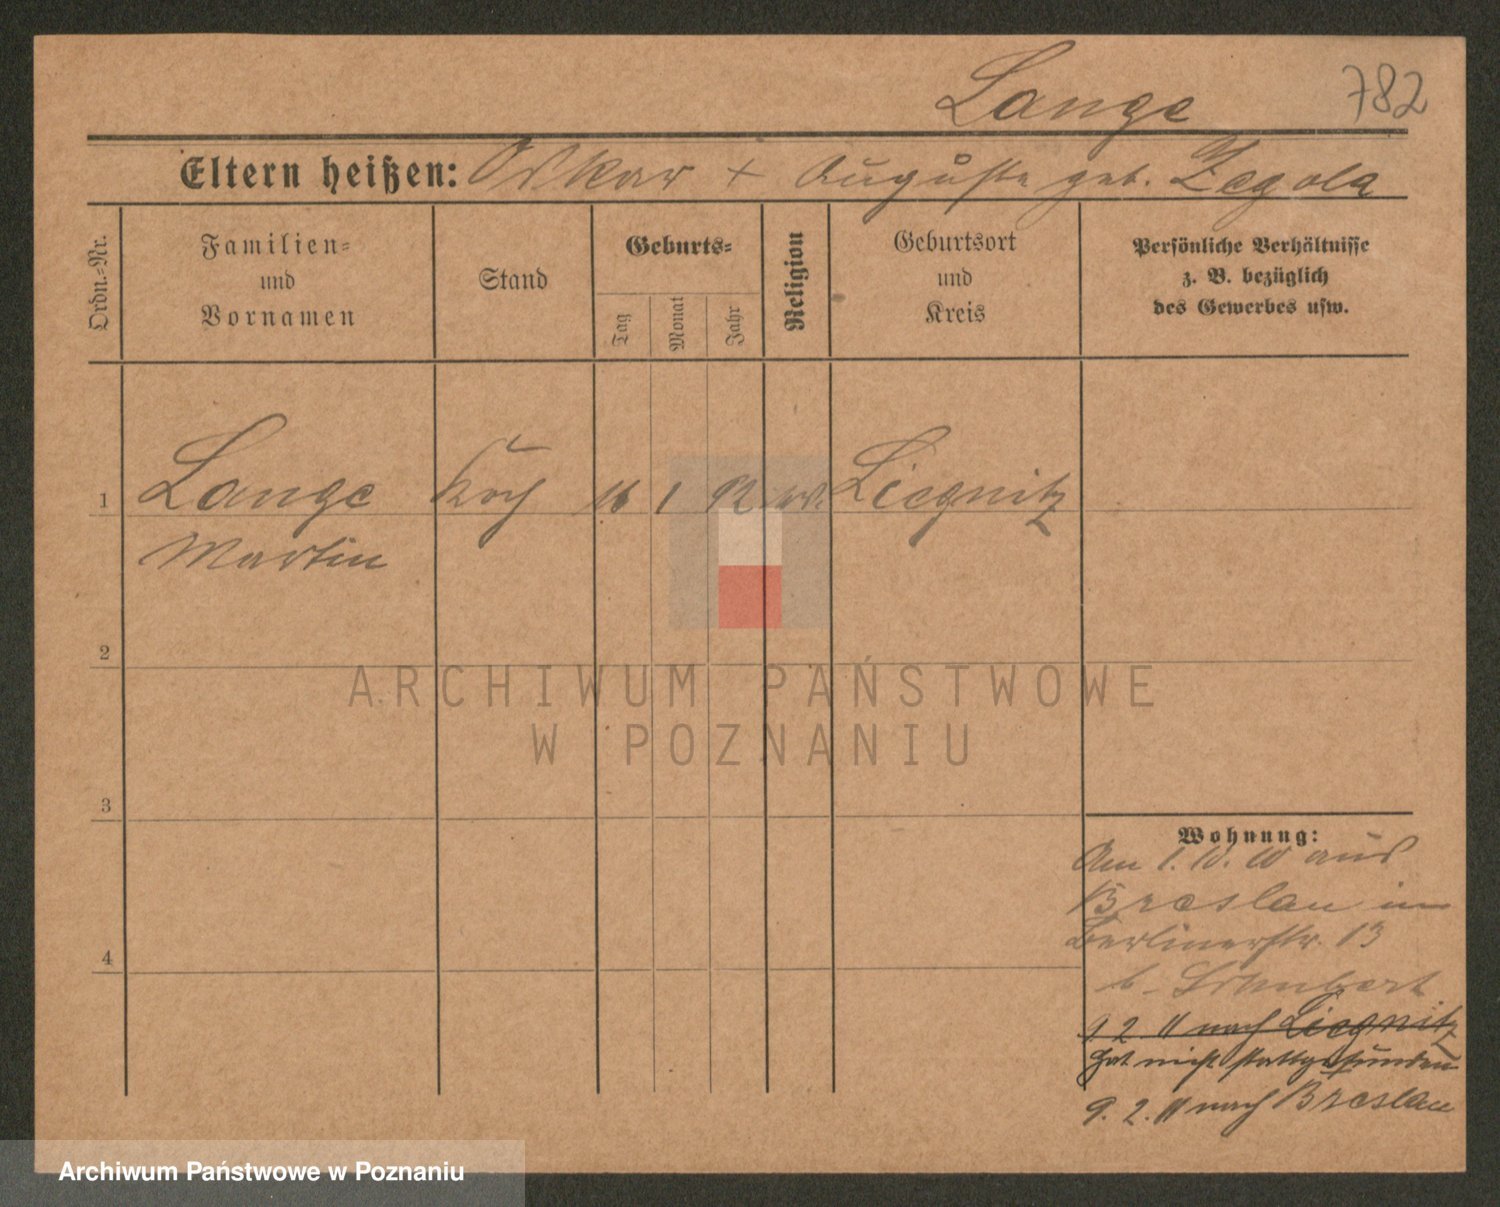 Lange 782
Eltern heißen: Oskar + Auguste geb. Zegola
Ordn.-Nr.
Familien-
und
Vornamen
Stand
Geburts-
Tag
Monat
Jahr
Religion
Geburtsort
und
Kreis
Persönliche Verhältnisse
z. B. bezüglich
des Gewerbes usw.
1 Lange Koch 16 1 92 ev. Liegnitz
Martin
2
3
4
Wohnung:
Am 1. 10. 10 aus
Breslau in
Berlinerstr. 13
b.
9 2 11 nach Liegnitz
hat nicht stattgefunden
9. 2. 11 nach Breslau
ARCHIWUM PAŃSTWOWE
W POZNANIU
Archiwum Państwowe w Poznaniu